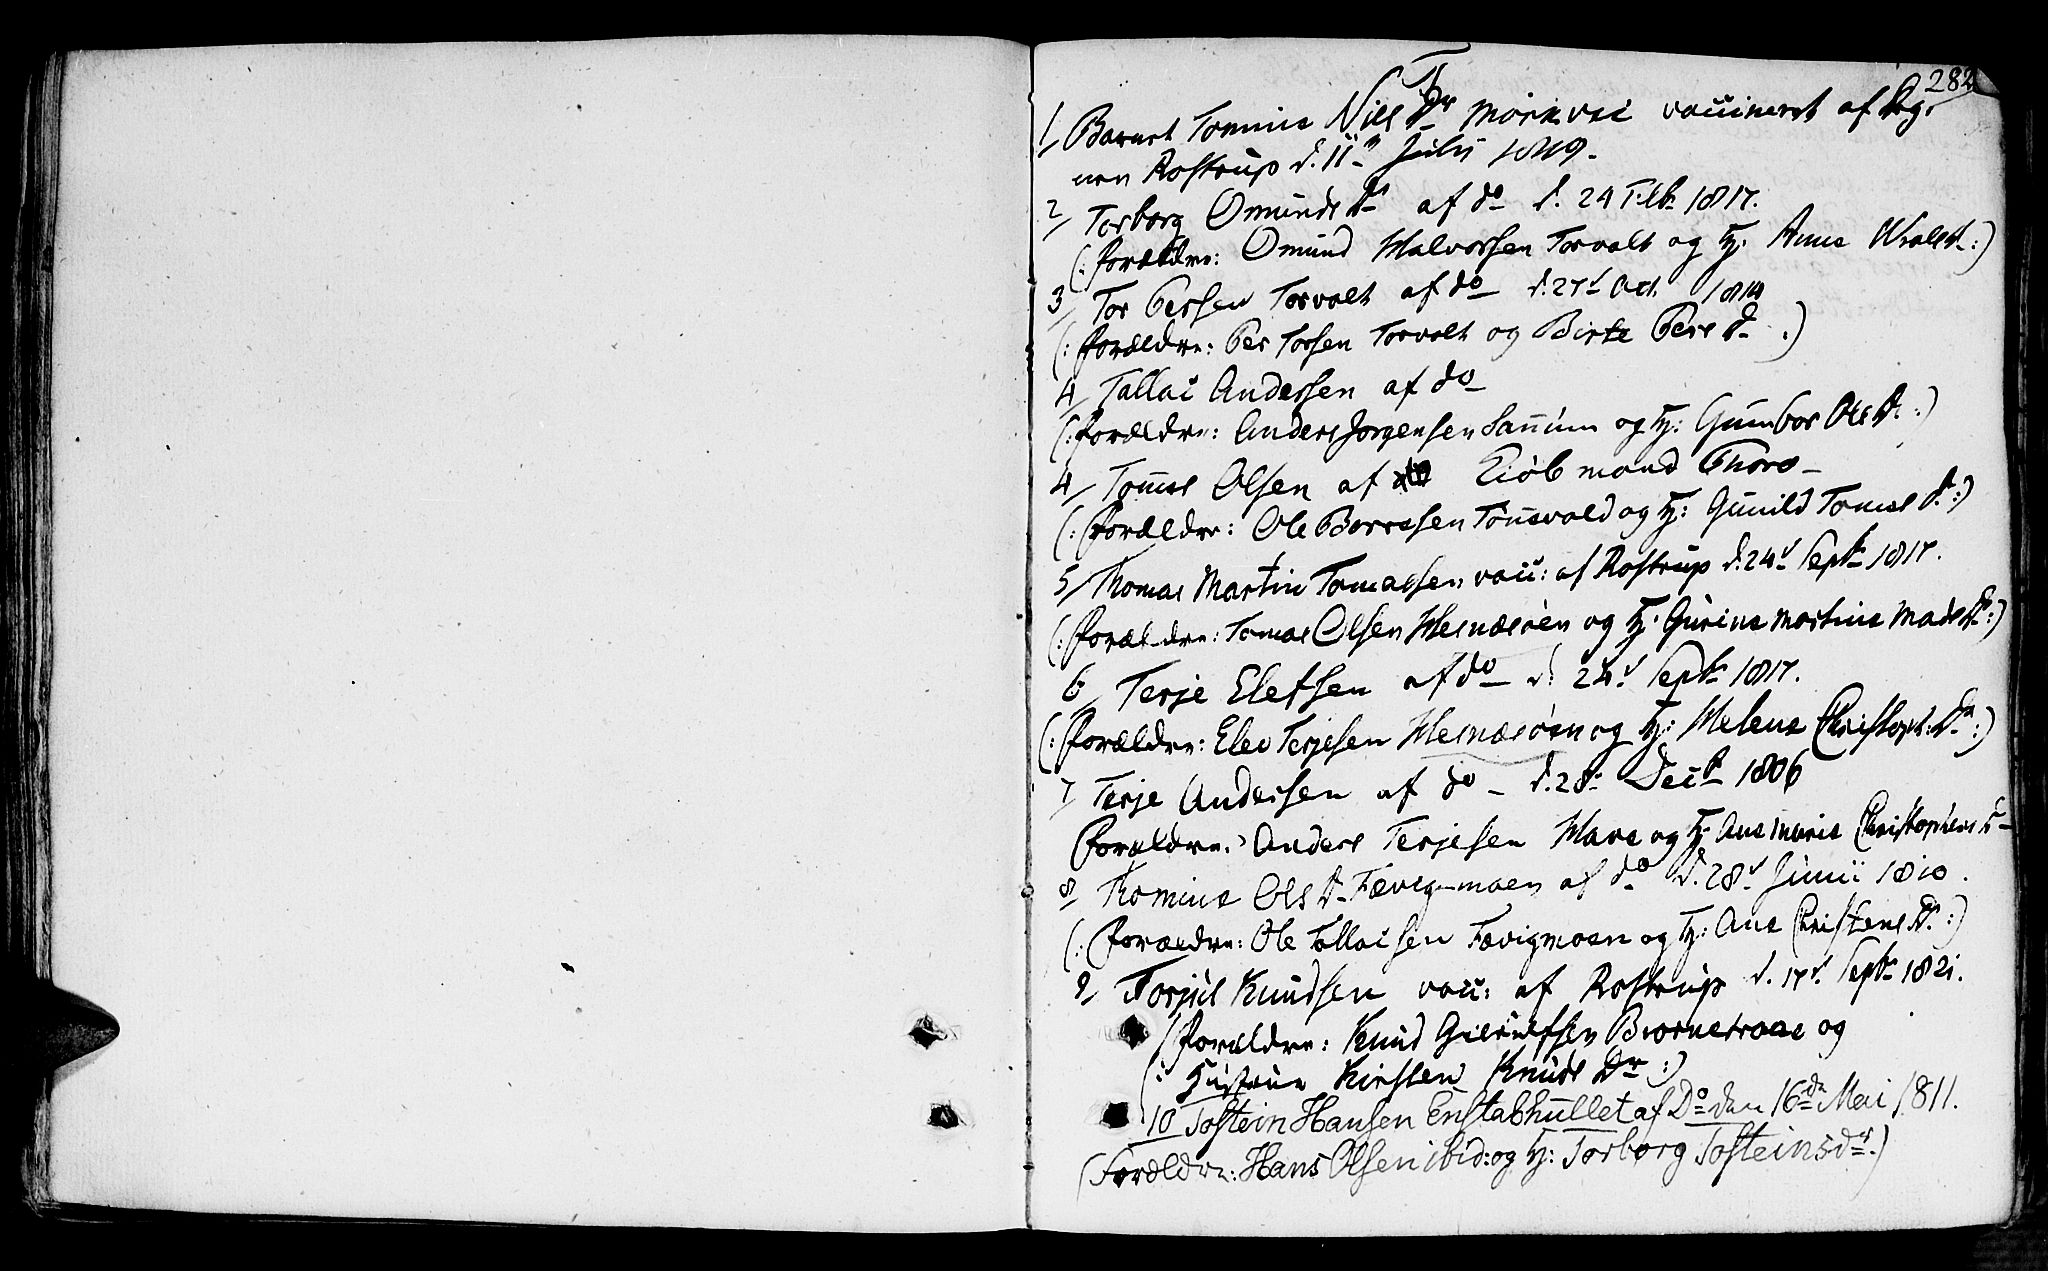 282
T
1, Barnet Tomine Niels Dr Mørkvei vaccineret af Deg-
nen Rostrup d. 11te Julii 1819.
2, Torborg Omunds Dr af do d. 24 Feb 1817.
(: Forældre: Omund Halvorsen Torvolt og H: Anne :)
3, Tor Persen Torvolt af do d. 27d Oct. 1814
(: Forældre: Per Torsen Torvolt og Birte Pers D .)
4, Tallac Andersen af do
(: Forældre: Anders Jorgensen og H: Gunbor Ols D :)
4, Tomes Olsen af Thoro
(: Forældre: Ole Borresen Tønsvold og H: Gunild Tomes D :)
5, Thomas Martin Tomassen vacc: af Rostrup d. 24d Septb 1817.
(: Forældre: Tomas Olsen Hesnæsøen og H: Gurine Martine Mads D :)
6, Terje Elefsen af do d. 24d Septb 1817.
(: Forældre: Elev Terjesen Hesnæsøen og H: Helene Christoph: Dr :)
7, Terje Andersen af do d. 28d Decb 1806
(Forældre: Anders Terjesen Have og H: Ane Marie Christophers D
8, Thomine Ols D Fævigmoen af do d. 28d Junii 1810.
(: Forældre: Ole Tallacsen Fævigmoen og H: Ane Christens D :)
9, Torjul Knudsen vacc: af Rostrup d. 17d Septb 1821.
(Forældre: Knud Gierulfsen Biornetraae og
: Hustrue Kirsten Knuds Dr :)
10 Tostein Hansen Enstabhullet af Do den 16de Mai 1811.
(Forældre: Hans Olsen ibid: og H: Torborg Tosteinsdr.)